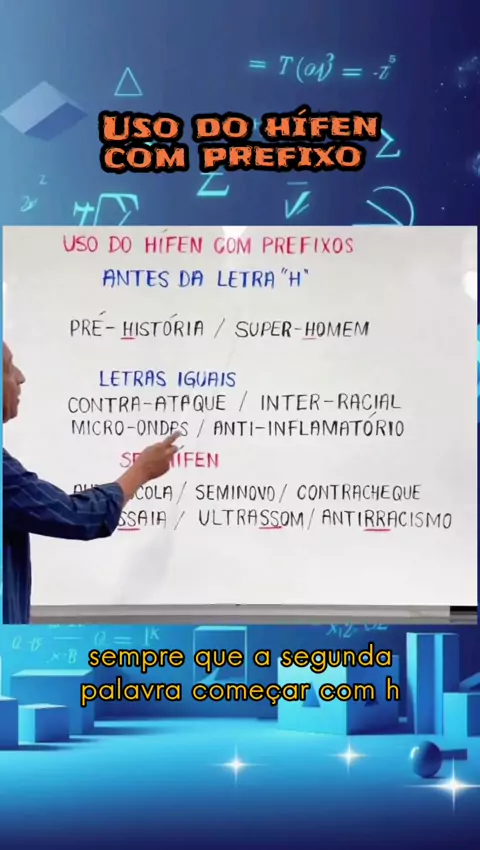 USO DO HÍFEN
COM PREFIXO
USO DO HÍFEN COM PREFIXOS
ANTES DA LETRA "H"
PRÉ-HISTÓRIA / SUPER-HOMEM
LETRAS IGUAIS
CONTRA-ATAQUE / INTER-RACIAL
MICRO-ONDAS / ANTI-INFLAMATÓRIO
HÍFEN
/ SEMINOVO / CONTRACHEQUE
/ ULTRASSOM / ANTIRRACISMO
sempre que a segunda
palavra começar com h